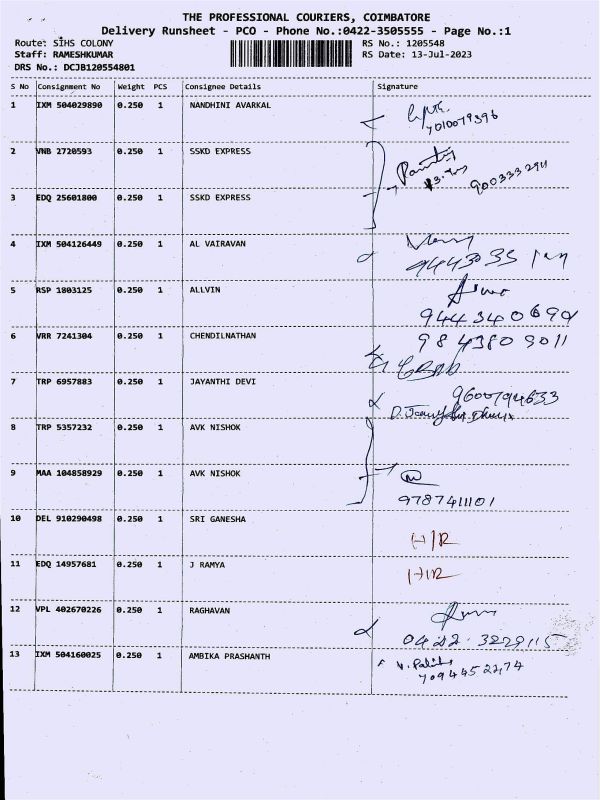 THE PROFESSIONAL COURIERS, COIMBATORE
Delivery Runsheet - PCO - Phone No.:0422-3505555 - Page No.:1
Route: SIHS COLONY
RS No.: 1205548
Staff: RAMESHKUMAR
RS Date: 13-Jul-2023
DRS No.: DCJB120554801
S No Consignment No Weight PCS Consignee Details Signature
1 IXM 504029890 0.250 1 NANDHINI AVARKAL
7010079396
2 VNB 2720593 0.250 1 SSKD EXPRESS
3 EDQ 25601800 0.250 1 SSKD EXPRESS
4 IXM 504126449 0.250 1 AL VAIRAVAN
5 RSP 1803125 0.250 1 ALLVIN
9443406 90
6 VRR 7241304 0.250 1 CHENDILNATHAN
9843809011
7 TRP 6957883 0.250 1 JAYANTHI DEVI
9600794633
8 TRP 5357232 0.250 1 AVK NISHOK
9 MAA 104858929 0.250 1 AVK NISHOK
9787411101
10 DEL 910290498 0.250 1 SRI GANESHA
H/R
11 EDQ 14957681 0.250 1 J RAMYA
H/R
12 VPL 402670226 0.250 1 RAGHAVAN
13 IXM 504160025 0.250 1 AMBIKA PRASHANTH
7094452274